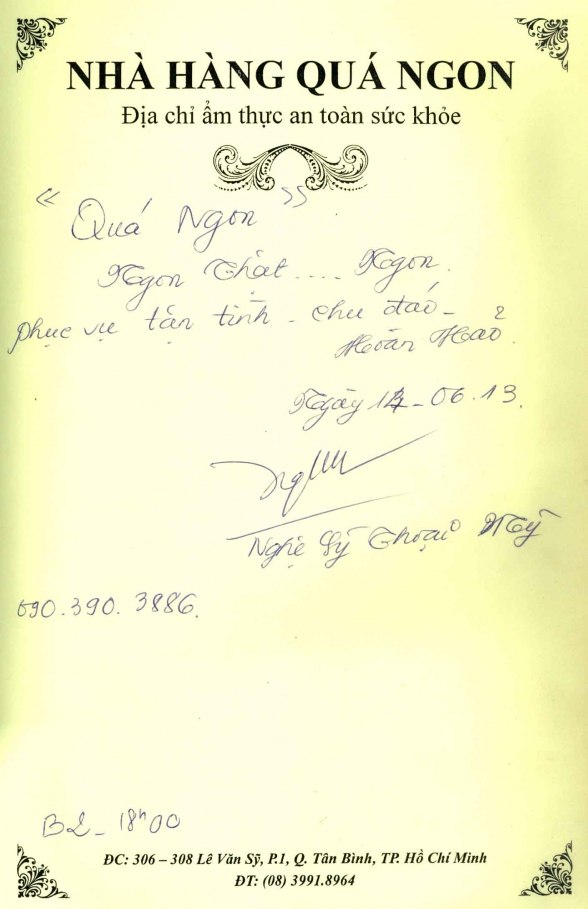 NHÀ HÀNG QUÁ NGON
Địa chỉ ẩm thực an toàn sức khỏe
"Quá Ngon"
Ngon Thật .... Ngon.
phục vụ tận tình - chu đáo -
Hoàn Hảo.
Ngày 14-06.13.
Nghệ Sỹ Thoại Mỹ
090.390.3886.
B2_18h00
ĐC: 306 – 308 Lê Văn Sỹ, P.1, Q. Tân Bình, TP. Hồ Chí Minh
ĐT: (08) 3991.8964